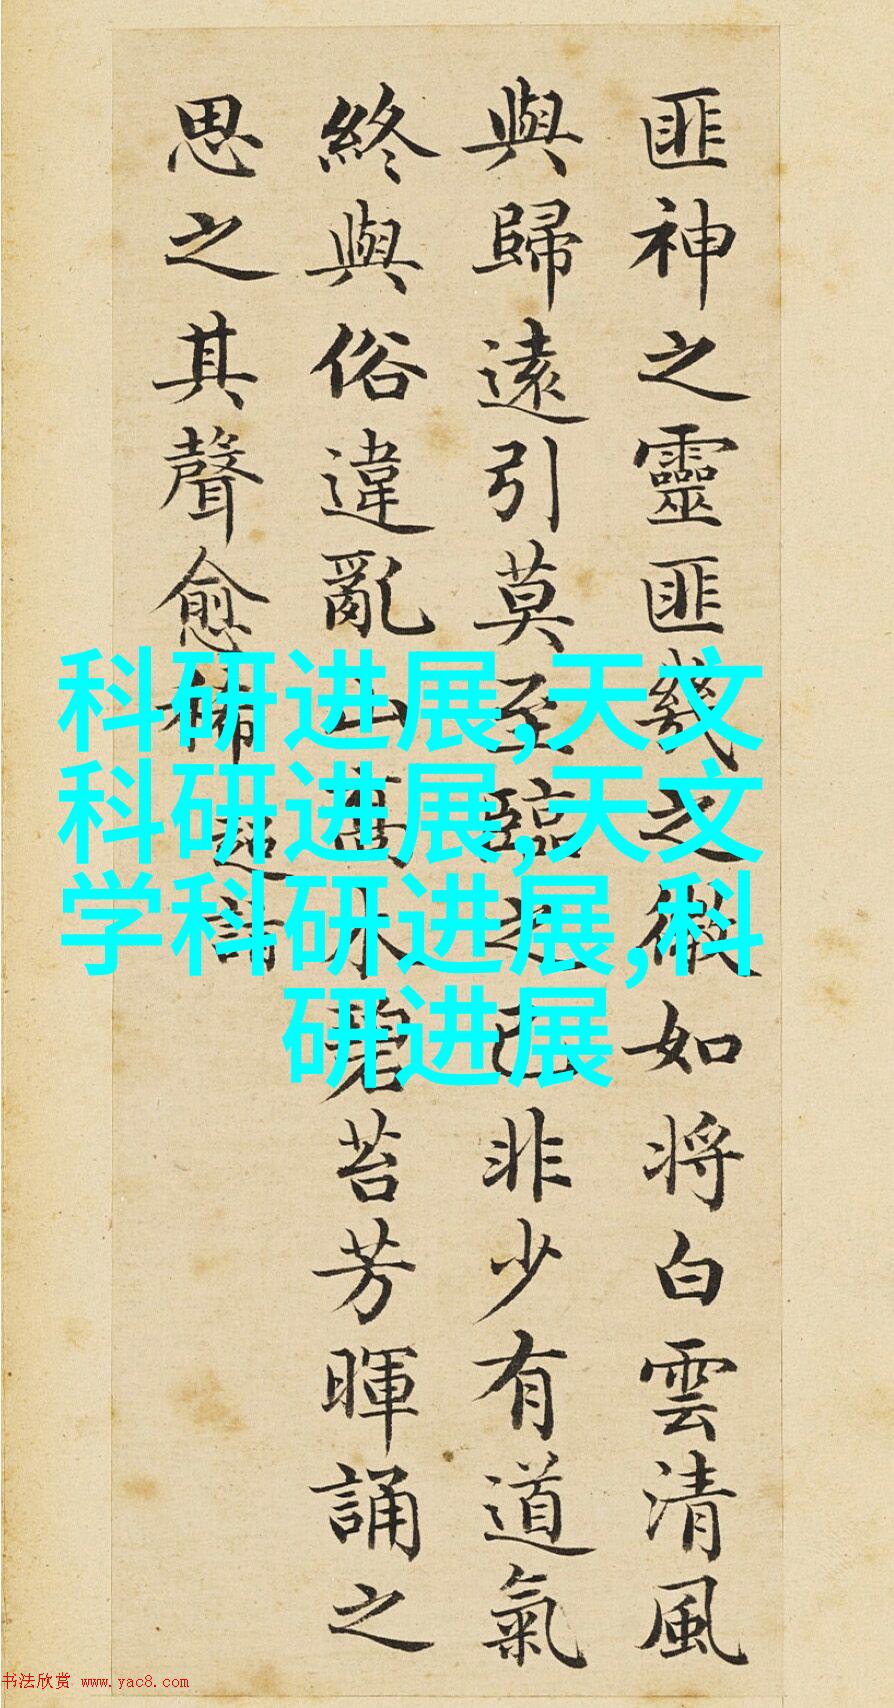 匪神之靈匪幾之微如將白雲清風
與歸遠引莫至臨之已非少有道氣
終與俗違亂山高木碧苔芳暉誦之
思之其聲愈稀 超詣
科研进展,天文
科研进展,天文
学科研进展,科
研进展
书法欣赏 www.yac8.com